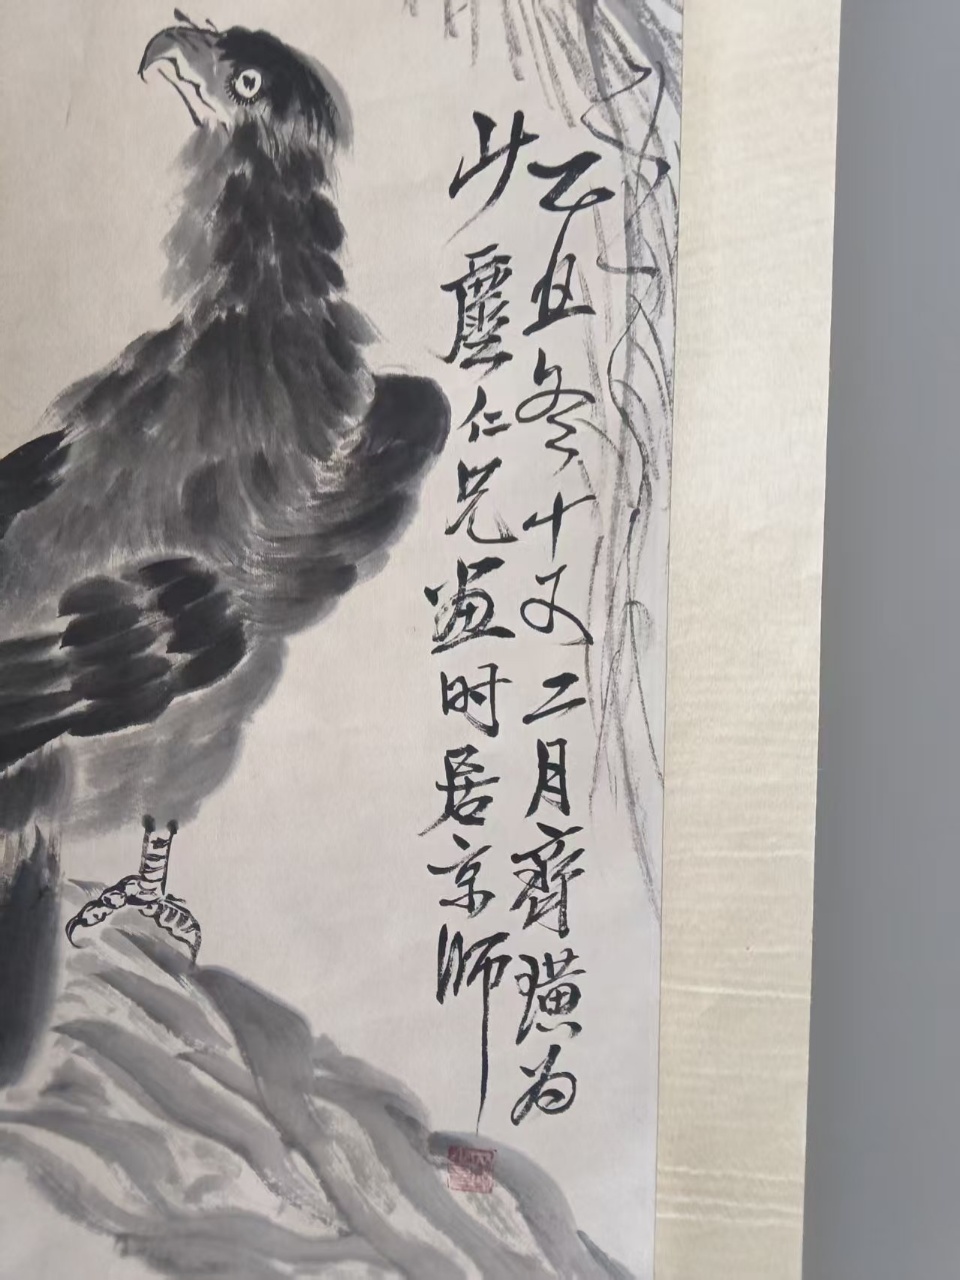 乙丑冬十又二月齊璜为
斗塵仁兄画时居京师